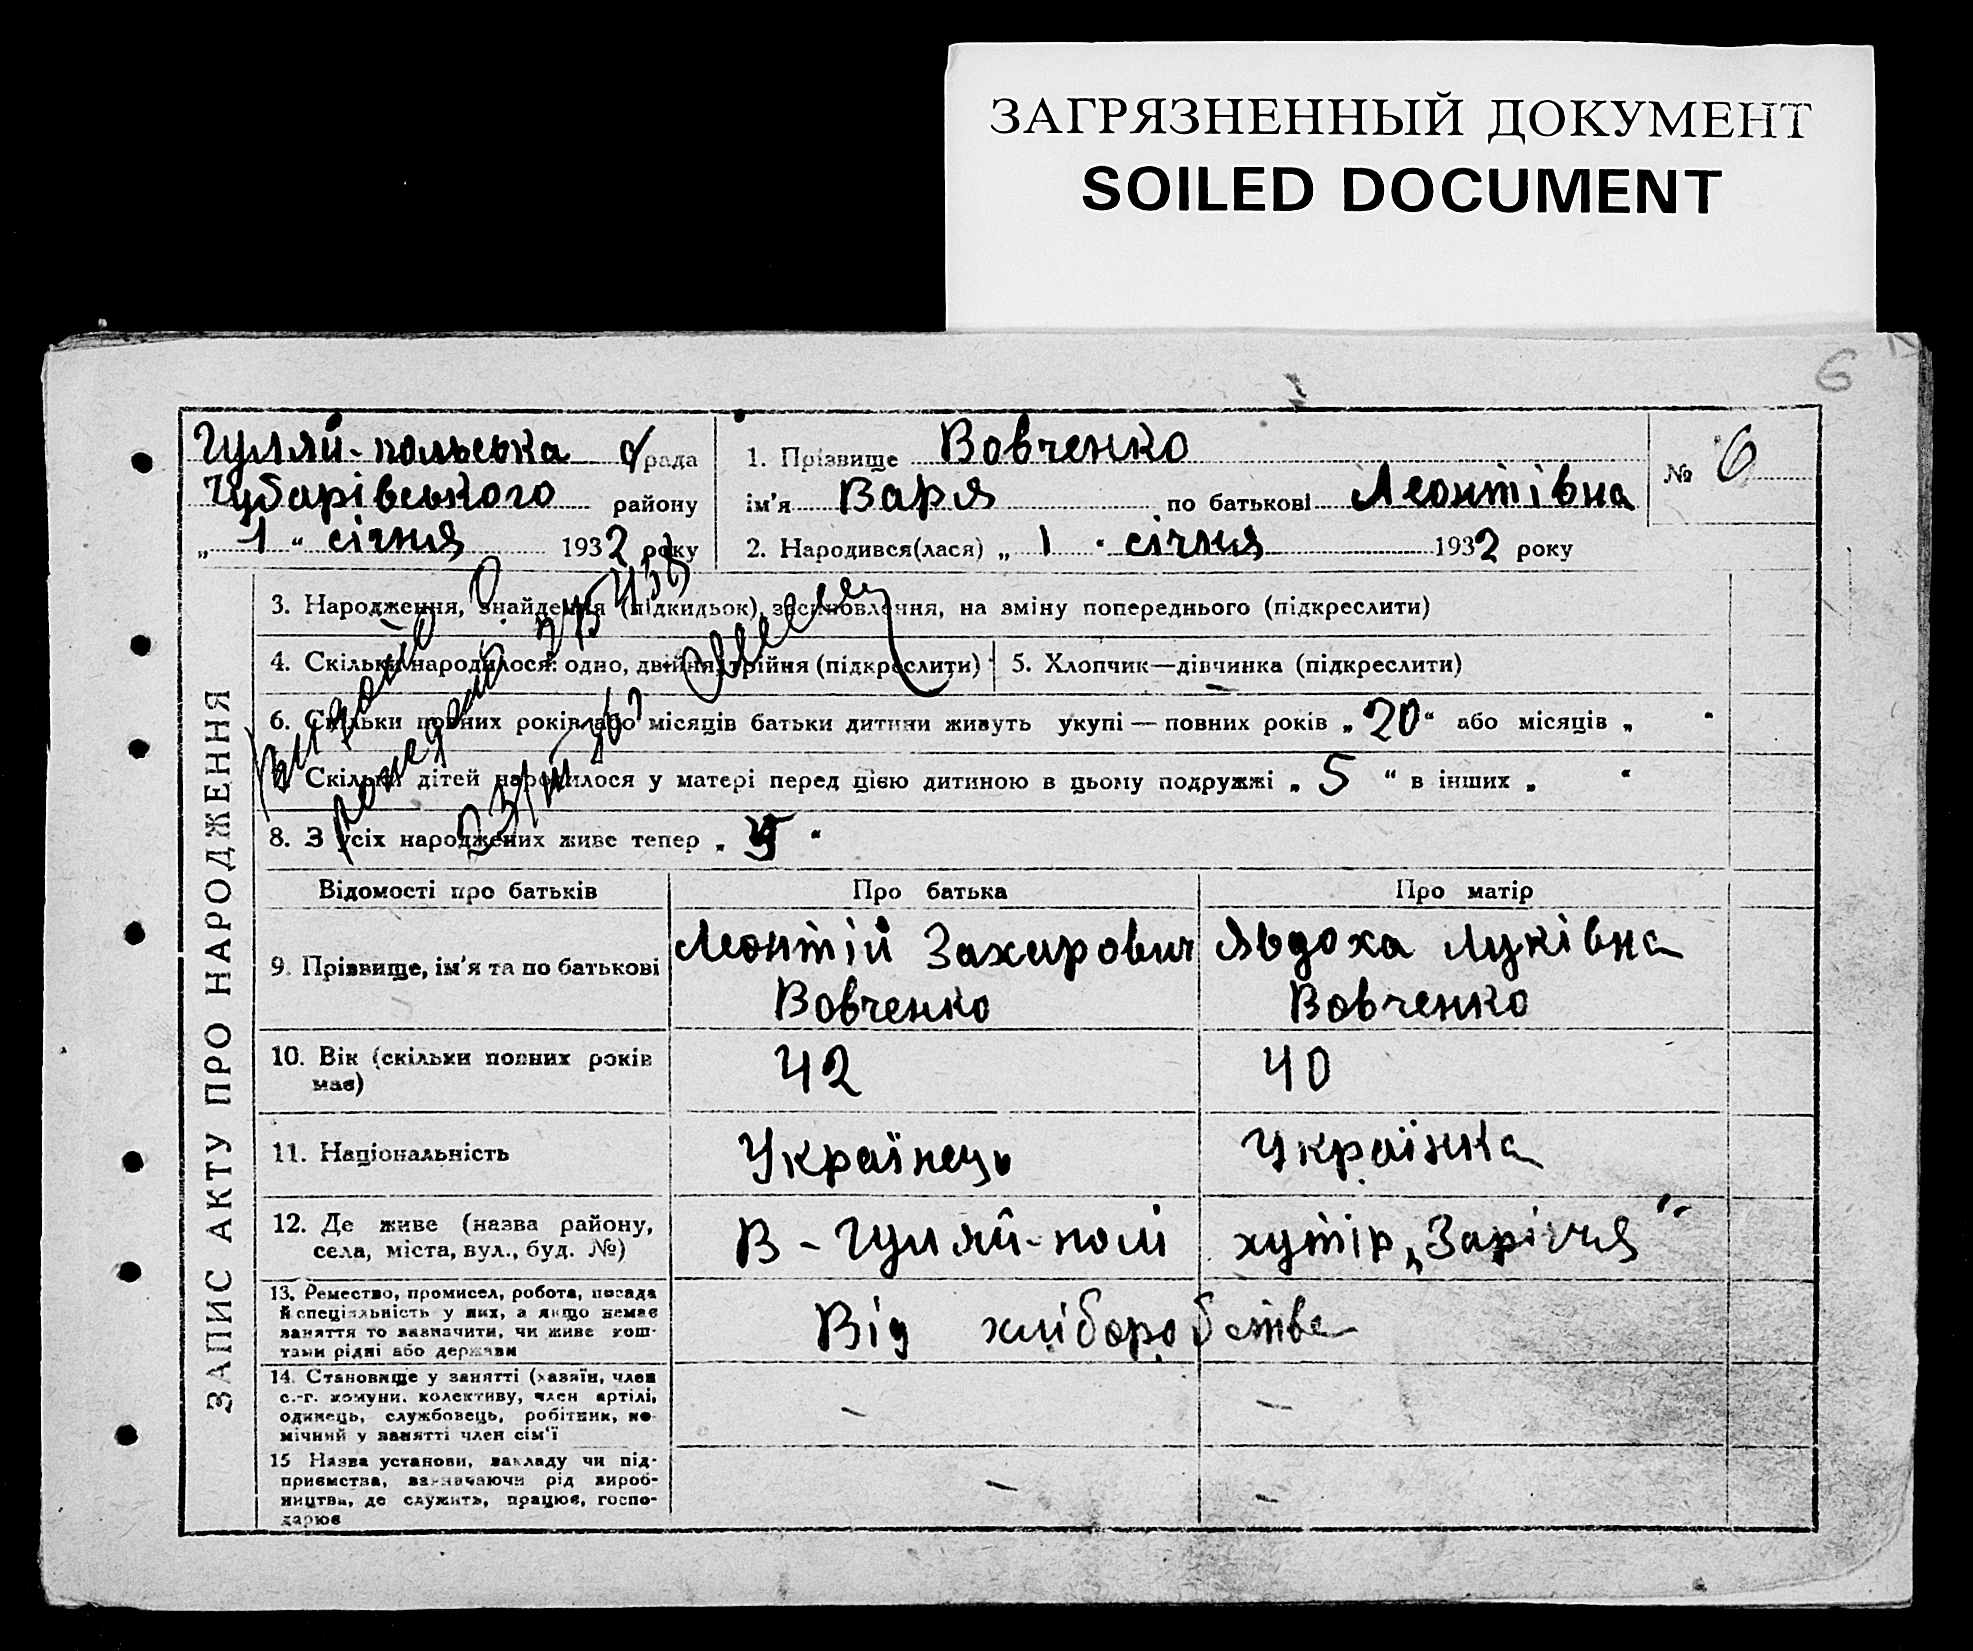 ЗАГРЯЗНЕННЫЙ ДОКУМЕНТ
SOILED DOCUMENT
6
ЗАПИС АКТУ ПРО НАРОДЖЕННЯ
Гуляй-польська с/рада
Чубарівського району
„ 1 “ січня 1932 року
1. Прізвище Вовченко
ім'я Варя по батькові Леонтівна
№ 6
2. Народився(лася) „ 1 “ січня 1932 року
3. Народження, знайдення (підкидьок), засиновлення, на зміну попереднього (підкреслити)
4. Скільки народилося: одно, двійня, трійня (підкреслити)
5. Хлопчик—дівчинка (підкреслити)
6. Скільки повних років або місяців батьки дитини живуть укупі — повних років „ 20 “ або місяців „ “
7. Скільки дітей народилося у матері перед цією дитиною в цьому подружжі „ 5 “ в інших „ “
8. З усіх народжених живе тепер „ 5 “
Видано
Відомості про батьків
Про батька
Про матір
9. Прізвище, ім'я та по батькові
Леонтій Захарович
Вовченко
Явдоха Луківна
Вовченко
10. Вік (скільки повних років
має)
42
40
11. Національність
Українець
Українка
12. Де живе (назва району,
села, міста, вул., буд. №)
В - Гуляй-полі хутір „Заріччя“
13. Ремество, промисел, робота, посада
й спеціяльність у них, а якщо немає
заняття то зазначити, чи живе кош-
тами рідні або держави
Від хліборобства
14. Становище у занятті (хазяїн, член
с.-г. комуни, колективу, член артілі,
одинець, службовець, робітник, по-
мічний у занятті член сім'ї
—
—
15 Назва установи, закладу чи під-
приємства, зазначаючи рід вироб-
ництва, де служить, працює, госпо-
дарює
—
—